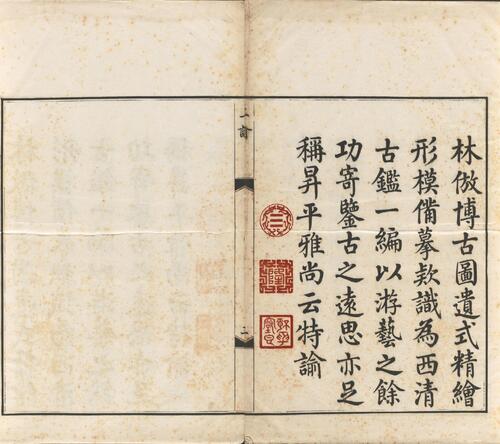 林倣博古圖遺式精繪
形模備摹款識為西清
古鑑一編以游藝之餘
功寄鑒古之遠思亦足
稱昇平雅尚云特諭
上諭
二